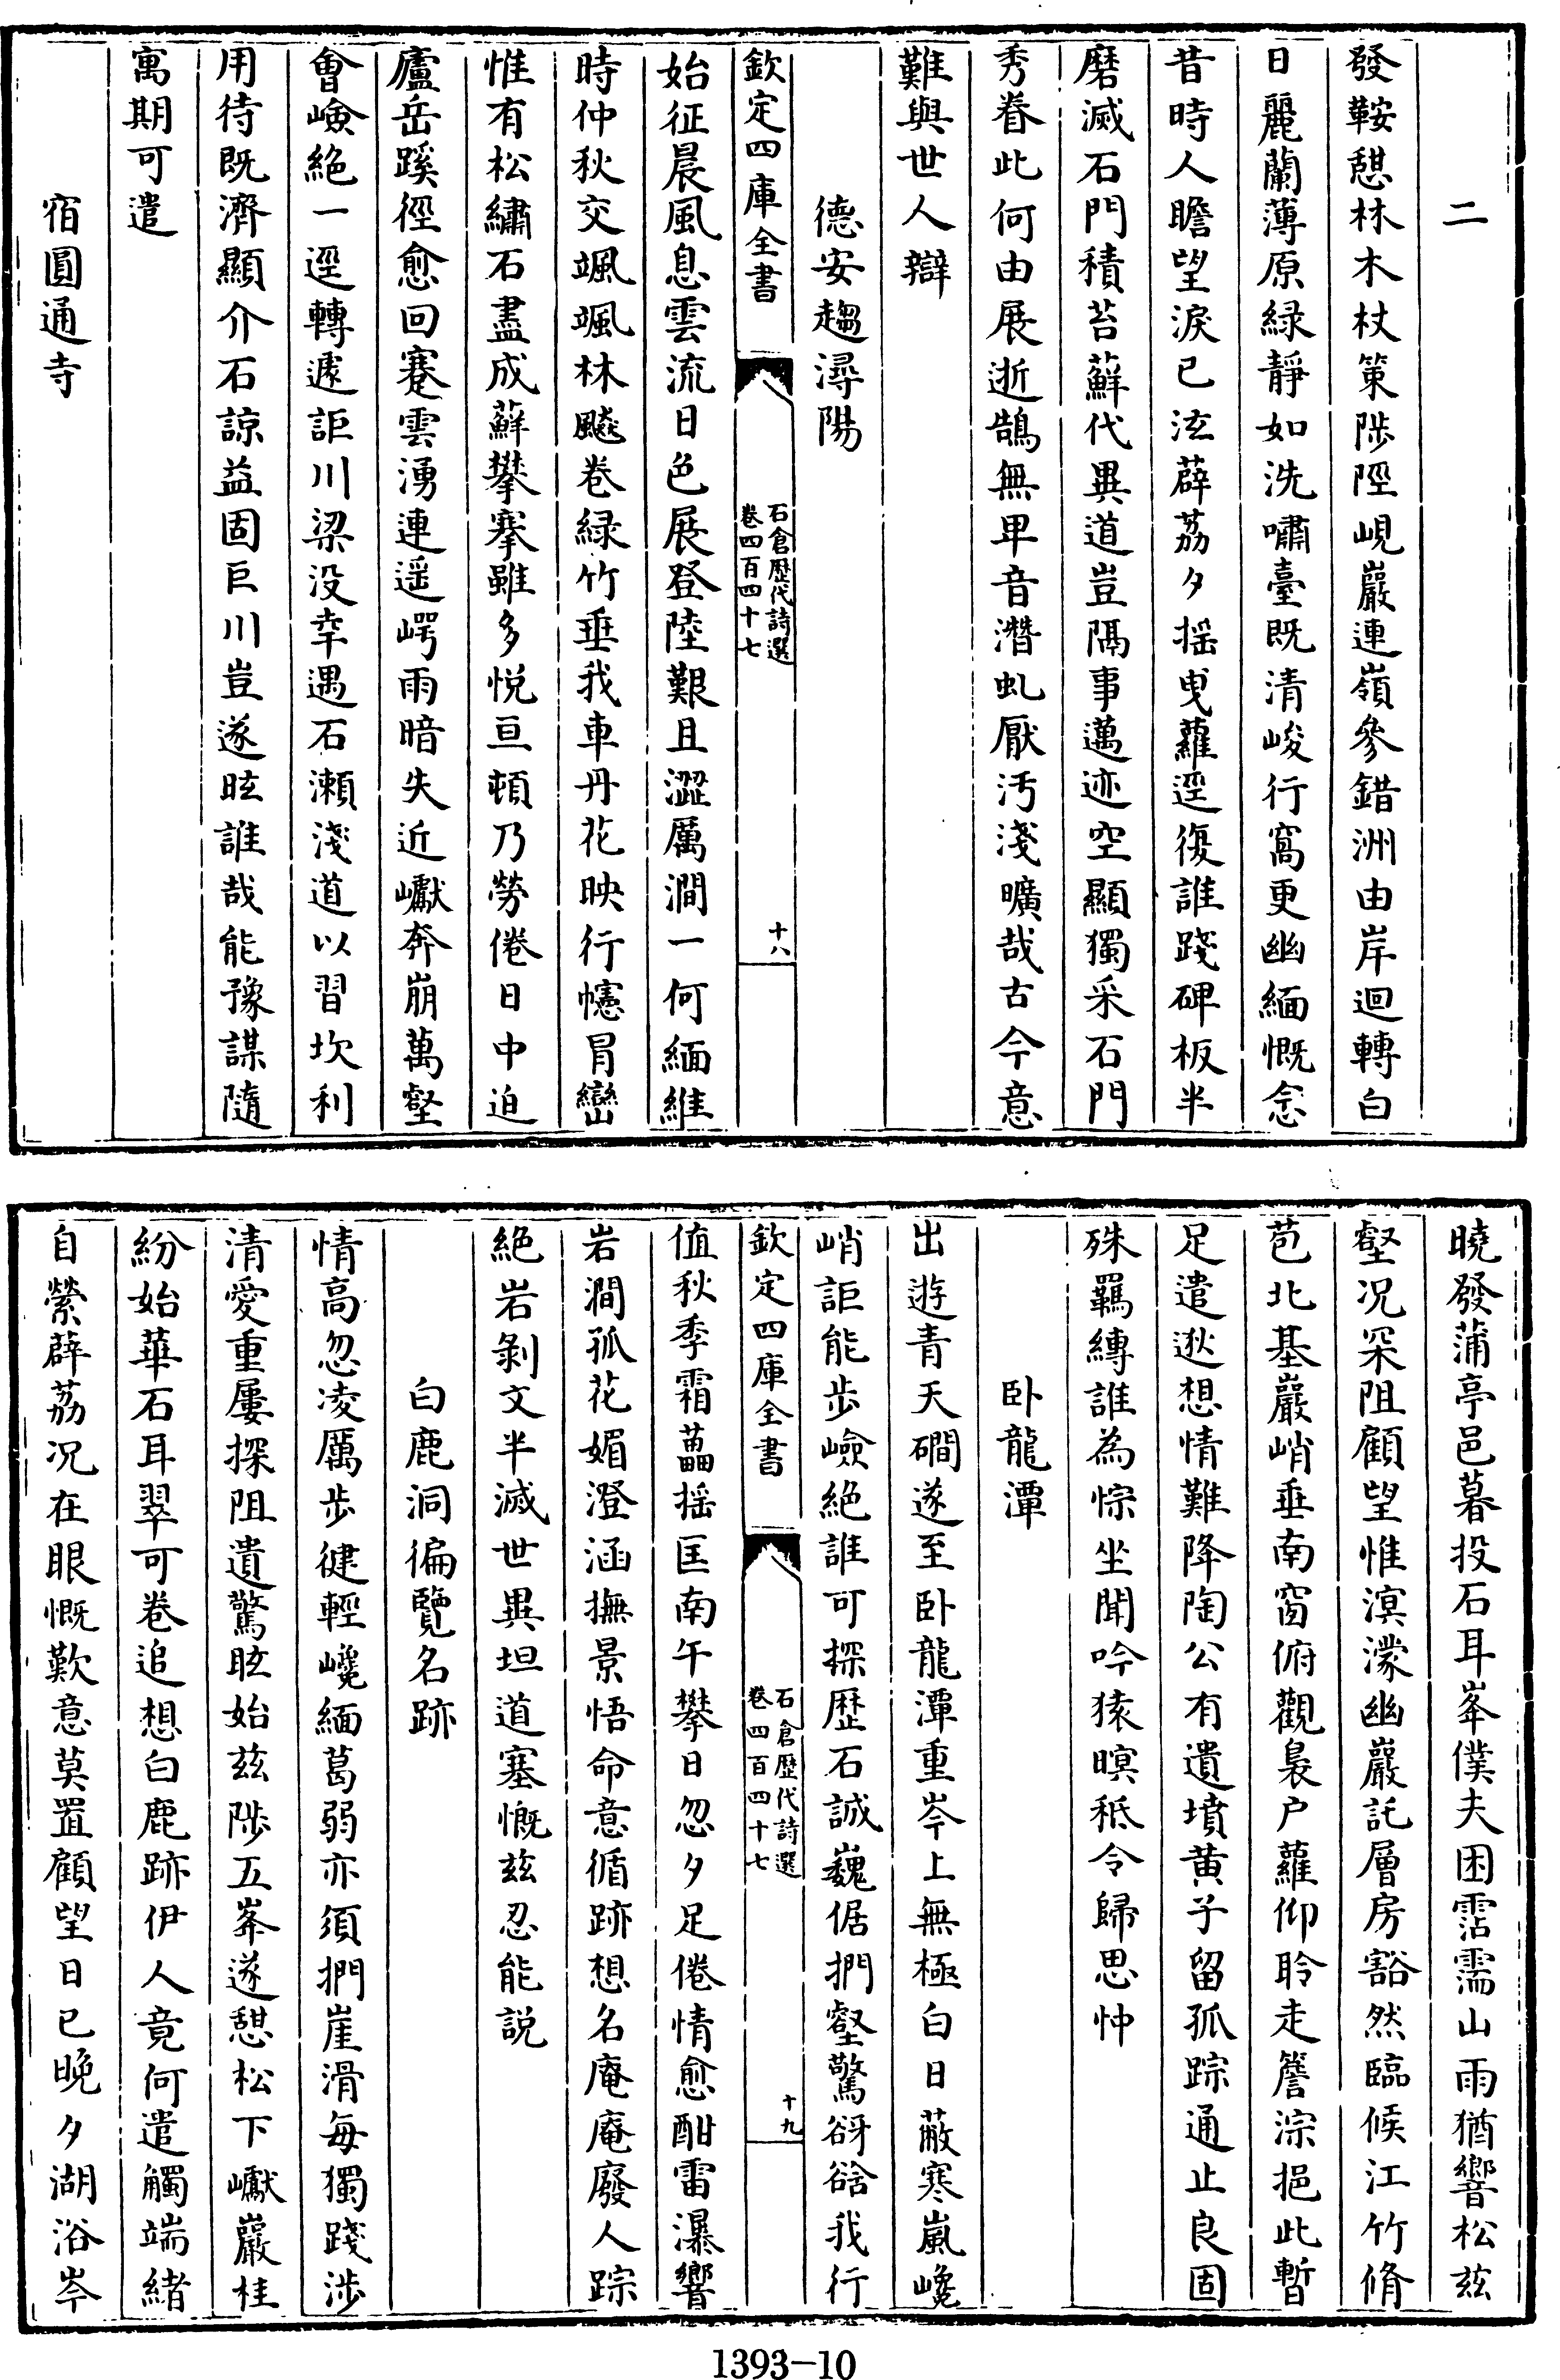 二
發鞍憇林木杖策陟陘峴巖連嶺參錯洲由岸迴轉白
日麗蘭薄原緑靜如洗嘯臺既清峻行窩更幽緬慨念
昔時人瞻望淚已泫薜荔夕揺曳蘿逕復誰踐碑板半
磨滅石門積苔蘚代異道豈隔事邁迹空顯獨采石門
秀眷此何由展逝鵠無卑音潛虬厭汚淺曠哉古今意
難與世人辯
德安趨潯陽
欽定四庫全書
石倉歷代詩選
卷四百四十七
十八
始征晨風息雲流日色展登陸艱且澀厲澗一何緬維
時仲秋交颯颯林飈卷緑竹垂我車丹花映行幰冐巒
惟有松繡石盡成蘚攀搴雖多悦亘頓乃勞倦日中迫
廬岳蹊徑愈回蹇雲湧連遥崿雨暗失近巘奔崩萬壑
會嶮絶一逕轉遽詎川梁没幸遇石瀨淺道以習坎利
用待既濟顯介石諒益固巨川豈遂眩誰哉能豫謀隨
寓期可遣
宿圓通寺
曉發蒲亭邑暮投石耳峯僕夫困霑濡山雨猶響松兹
壑况深阻顧望惟溟濛幽巖託層房豁然臨候江竹脩
苞北基巖峭垂南窗俯觀裊户蘿仰聆走簷淙挹此暫
足遣逖想情難降陶公有遺墳黄子留孤踪通止良固
殊羈縛誰為悰坐聞吟猿暝秪令歸思忡
卧龍潭
出遊青天磵遂至卧龍潭重岑上無極白日蔽寒嵐巉
峭詎能步嶮絶誰可探歴石誠巍倨捫壑驚谺谽我行
欽定四庫全書
石倉歷代詩選
卷四百四十七
十九
值秋季霜藟揺匡南午攀日忽夕足倦情愈酣雷瀑響
岩澗孤花媚澄涵撫景悟命意循跡想名庵庵廢人踪
絶岩剝文半滅世異坦道塞慨兹忍能説
白鹿洞徧覽名跡
情高忽凌厲步健輕巉緬葛弱亦須捫崖滑每獨踐涉
清愛重屢探阻遺驚眩始兹陟五峯遂憇松下巘巖桂
紛始華石耳翠可卷追想白鹿跡伊人竟何遣觸端緒
自縈薜荔况在眼慨歎意莫置顧望日已晩夕湖浴岑
1393-10